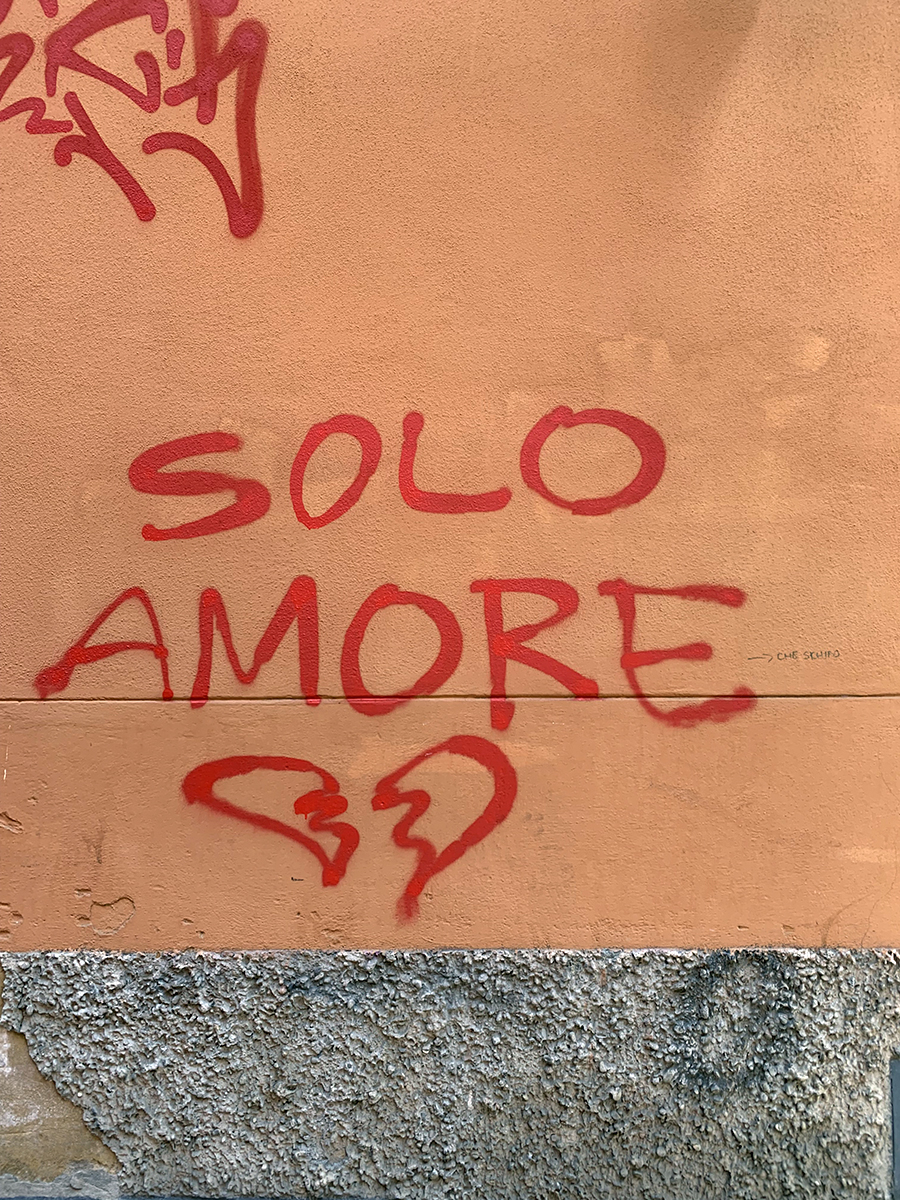 SOLO
AMORE
→ CHE SCHIFO